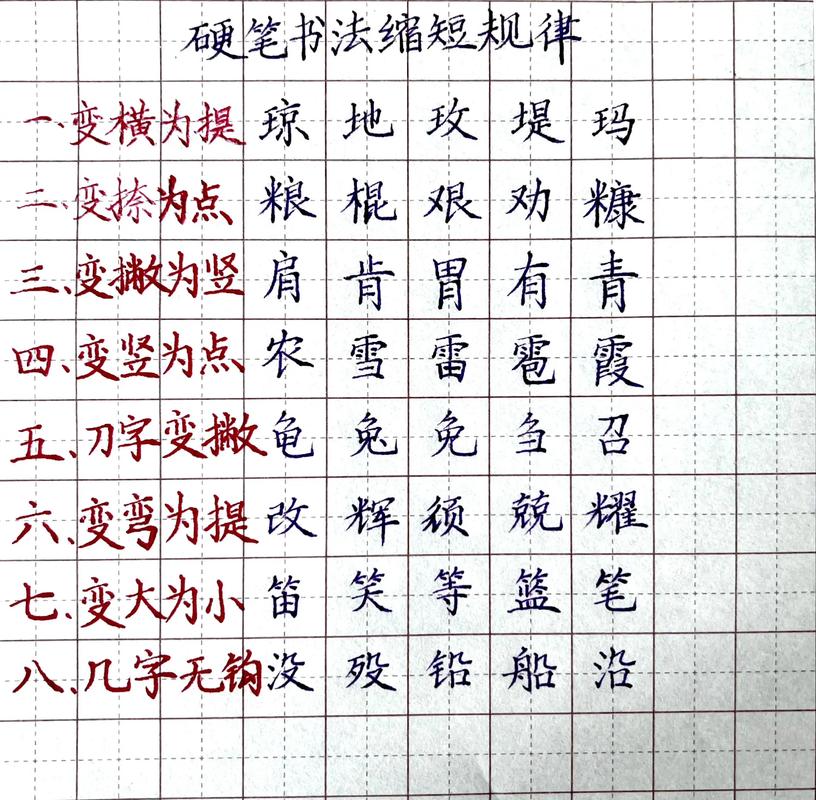 硬笔书法缩短规律
一.变横为提 琼 地 玫 堤 玛
二、变捺为点 粮 棍 艰 劝 糠
三、变撇为竖 肩 肯 胃 有 青
四、变竖为点 农 雪 雷 雹 霞
五、刀字变撇 龟 兔 免 刍 召
六、变弯为提 改 辉 颁 兢 耀
七、变大为小 笛 笑 等 篮 笔
八、几字无钩 没 殁 铅 船 沿